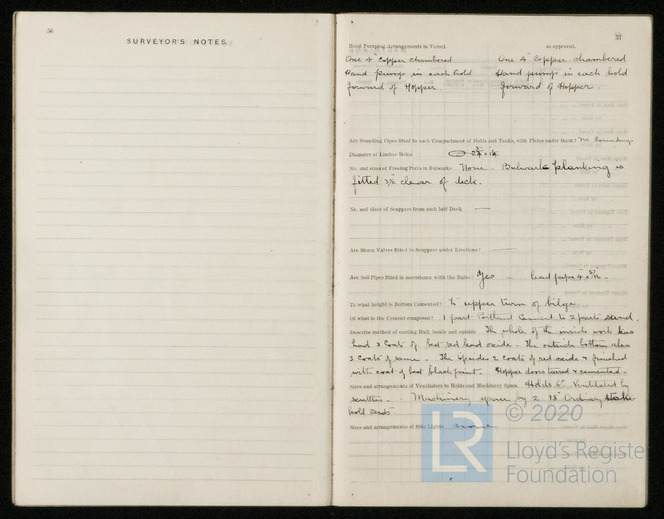 56
SURVEYOR'S NOTES
57
Hand Pumping Arrangements in Vessel. as approved.
One 4" Copper chambered One 4" Copper chambered
Hand pump in each hold Hand pump in each hold
forward of Hopper. forward of Hopper.
Are Sounding Pipes fitted to each Compartment of Holds and Tanks, with Plates under them? No Sounding
Diameter of Limber Holes
No. and sizes of Freeing Ports in Bulwarks None. Bulwarks planking is
fitted clear of deck.
No. and sizes of Scuppers from each laid Deck —
Are Storm Valves fitted to Scuppers under Erections? —
Are Soil Pipes fitted in accordance with the Rules? Yes — lead pipes
To what height is Bottom Cemented? To upper turn of bilge
Of what is the Cement composed? 1 part Portland Cement to 2 parts sand.
Describe method of coating Hull, inside and outside. The whole of the inside work has
had 3 Coats of best red lead oxide. The outside bottom also
3 coats of same. The topsides 2 coats of red oxide & finished
with coat of best black paint. Hopper doors tarred & cemented.
Sizes and arrangements of Ventilators to Holds and Machinery Space. Holds 6" Ventilated by
Machinery space by 2 18" Ordinary
hold
Sizes and arrangements of Side Lights none
LR © 2020
Lloyd's Register
Foundation